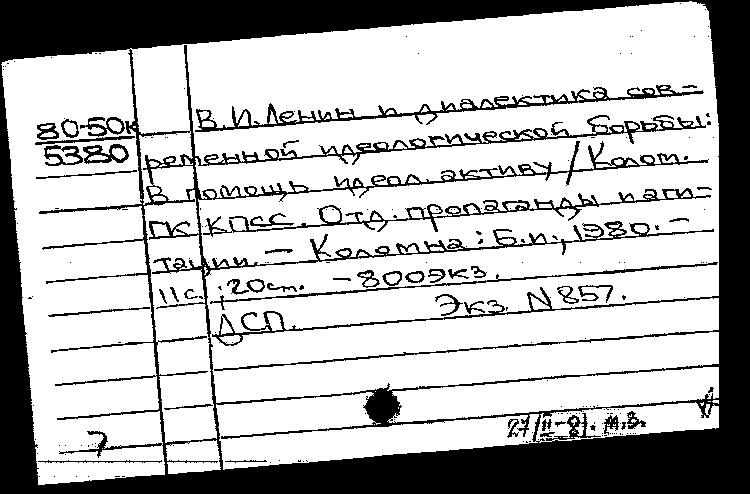 80-50к
5380
В.И.Ленин и диалектика сов-
ременной идеологической борьбы:
В помощь идеол. активу / Колом.
ГК КПСС. Отд. пропаганды и аги-
тации. — Коломна : Б.и., 1980. —
11 с. ; 20 см. - 800 экз.
ДСП. Экз. N 857.
7
27/II-81. М.З.